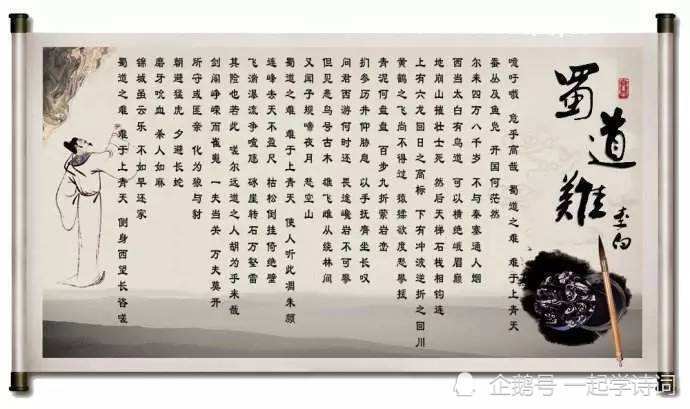 蜀道難
李白
噫吁嚱 危乎高哉 蜀道之难 难于上青天
蚕丛及鱼凫 开国何茫然
尔来四万八千岁 不与秦塞通人烟
西当太白有鸟道 可以横绝峨眉巅
地崩山摧壮士死 然后天梯石栈相钩连
上有六龙回日之高标 下有冲波逆折之回川
黄鹤之飞尚不得过 猿猱欲度愁攀援
青泥何盘盘 百步九折萦岩峦
扪参历井仰胁息 以手抚膺坐长叹
问君西游何时还 畏途巉岩不可攀
但见悲鸟号古木 雄飞雌从绕林间
又闻子规啼夜月 愁空山
蜀道之难 难于上青天 使人听此凋朱颜
连峰去天不盈尺 枯松倒挂倚绝壁
飞湍瀑流争喧豗 砯崖转石万壑雷
其险也若此 嗟尔远道之人胡为乎来哉
剑阁峥嵘而崔嵬 一夫当关 万夫莫开
所守或匪亲 化为狼与豺
朝避猛虎 夕避长蛇
磨牙吮血 杀人如麻
锦城虽云乐 不如早还家
蜀道之难 难于上青天 侧身西望长咨嗟
企鹅号 一起学诗词